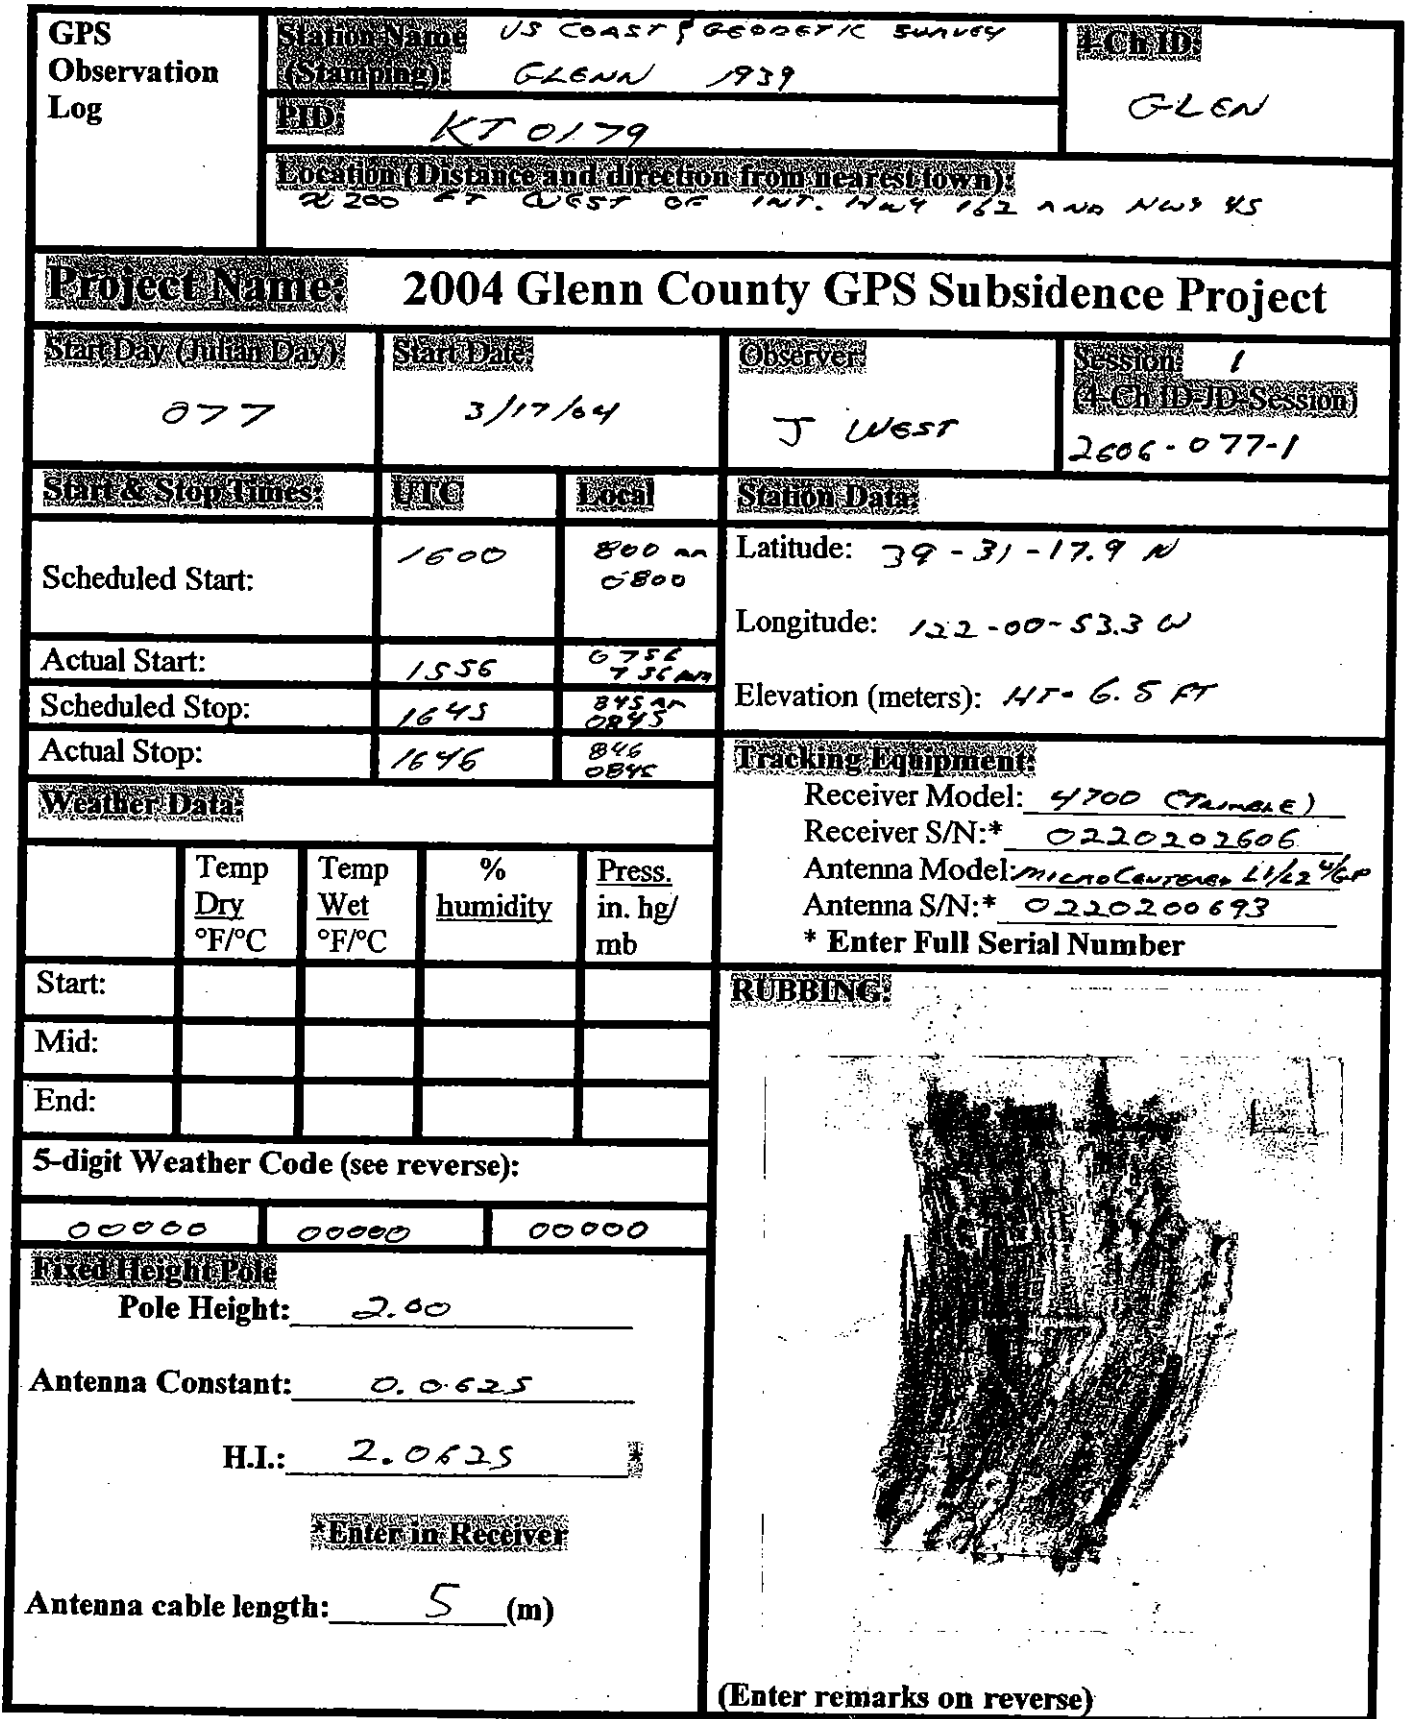 GPS
Observation
Log
Station Name US COAST & GEODETIC SURVEY
(Stamping): GLENN 1939
PID: KT0179
4-Ch ID:
GLEN
Location (Distance and direction from nearest town):
≈ 200 FT WEST OF INT. HWY 162 AND HWY 45
Project Name: 2004 Glenn County GPS Subsidence Project
Start Day (Julian Day)
077
Start Date:
3/17/04
Observer:
J WEST
Session: 1
(4-Ch ID-JD-Session)
2606-077-1
Start & Stop Times: UTC Local
Scheduled Start: 1600 800 am
0800
Actual Start: 1556 0756
756 am
Scheduled Stop: 1645 845 am
0845
Actual Stop: 1646 846
Station Data:
Latitude: 39-31-17.9 N
Longitude: 122-00-53.3 W
Elevation (meters): HT- 6.5 FT
Tracking Equipment:
Receiver Model: 4700 (TRIMBLE)
Receiver S/N:* 0220202606
Antenna Model: MICROCENTERED L1/L2 W/GP
Antenna S/N:* 0220200693
* Enter Full Serial Number
Weather Data:
Temp
Dry
°F/°C
Temp
Wet
°F/°C
%
humidity
Press.
in. hg/
mb
Start:
Mid:
End:
5-digit Weather Code (see reverse):
00000 00000 00000
Fixed Height Pole
Pole Height: 2.00
Antenna Constant: 0.0625
H.I.: 2.0625 *
*Enter in Receiver
Antenna cable length: 5 (m)
RUBBING:
(Enter remarks on reverse)